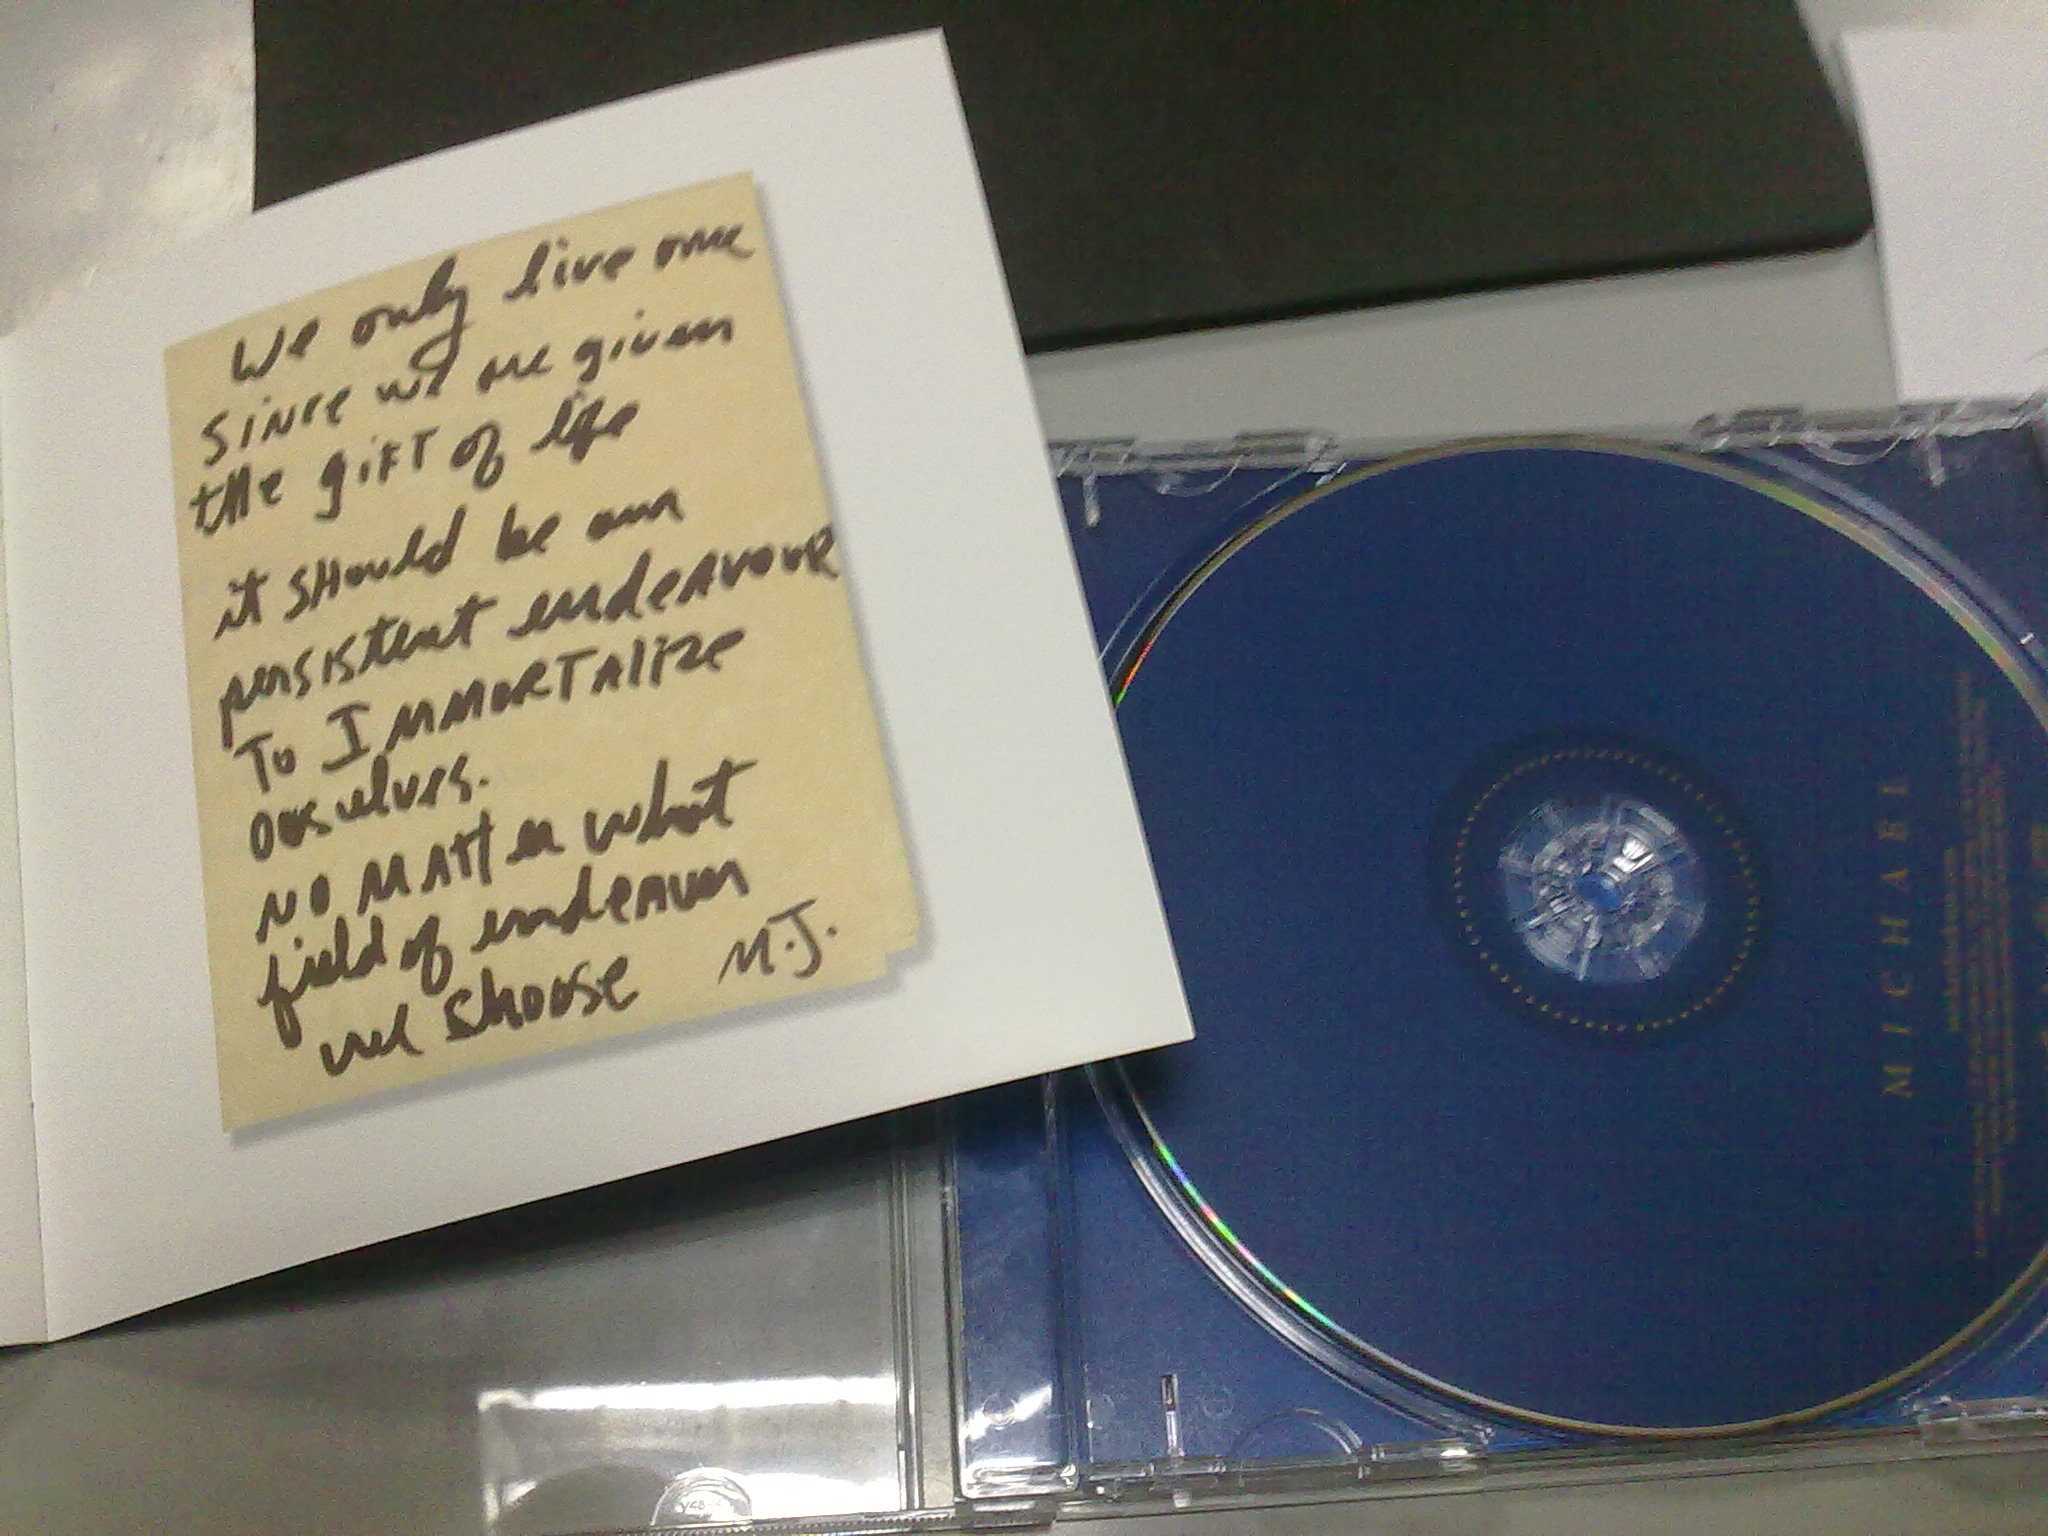 We only live once
since we are given
the gift of life
it should be our
persistent endeavour
To Immortalize
ourselves.
no matter what
field of endeavor
we choose M.J.
MICHAEL